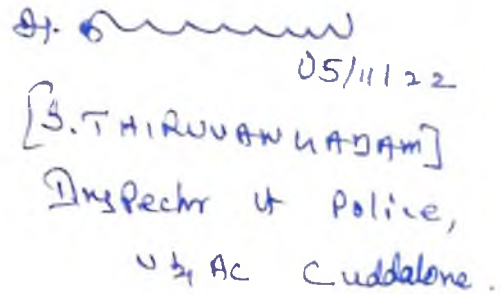 05/11/22
[S. THIRUVANKADAM]
Inspector of Police,
V & AC Cuddalore.